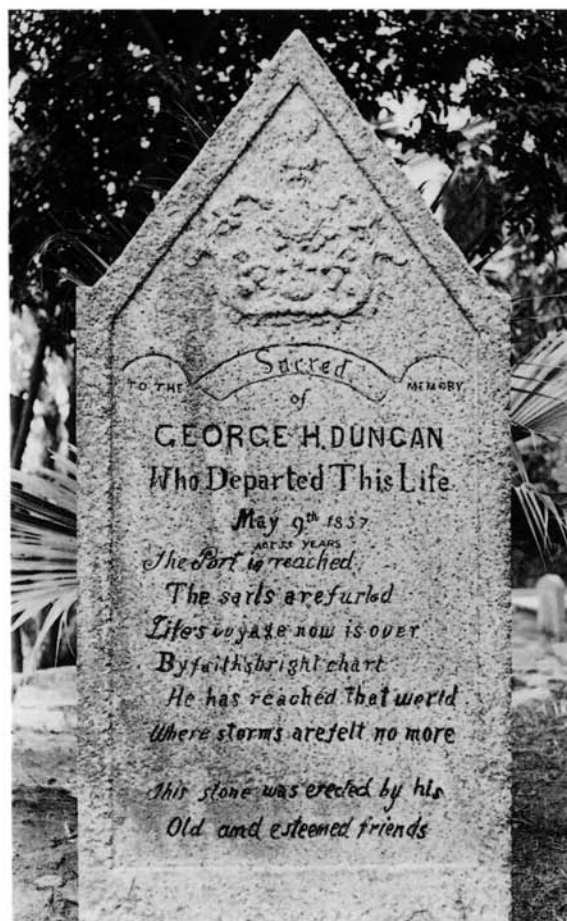 Sacred
TO THE MEMORY
of
GEORGE H. DUNCAN
Who Departed This Life
May 9th 1857
YEARS
The Port is reached
The sails are furled
Life's voyage now is over
By faiths bright chart
He has reached that world
Where storms are felt no more
This stone was erected by his
Old and esteemed friends